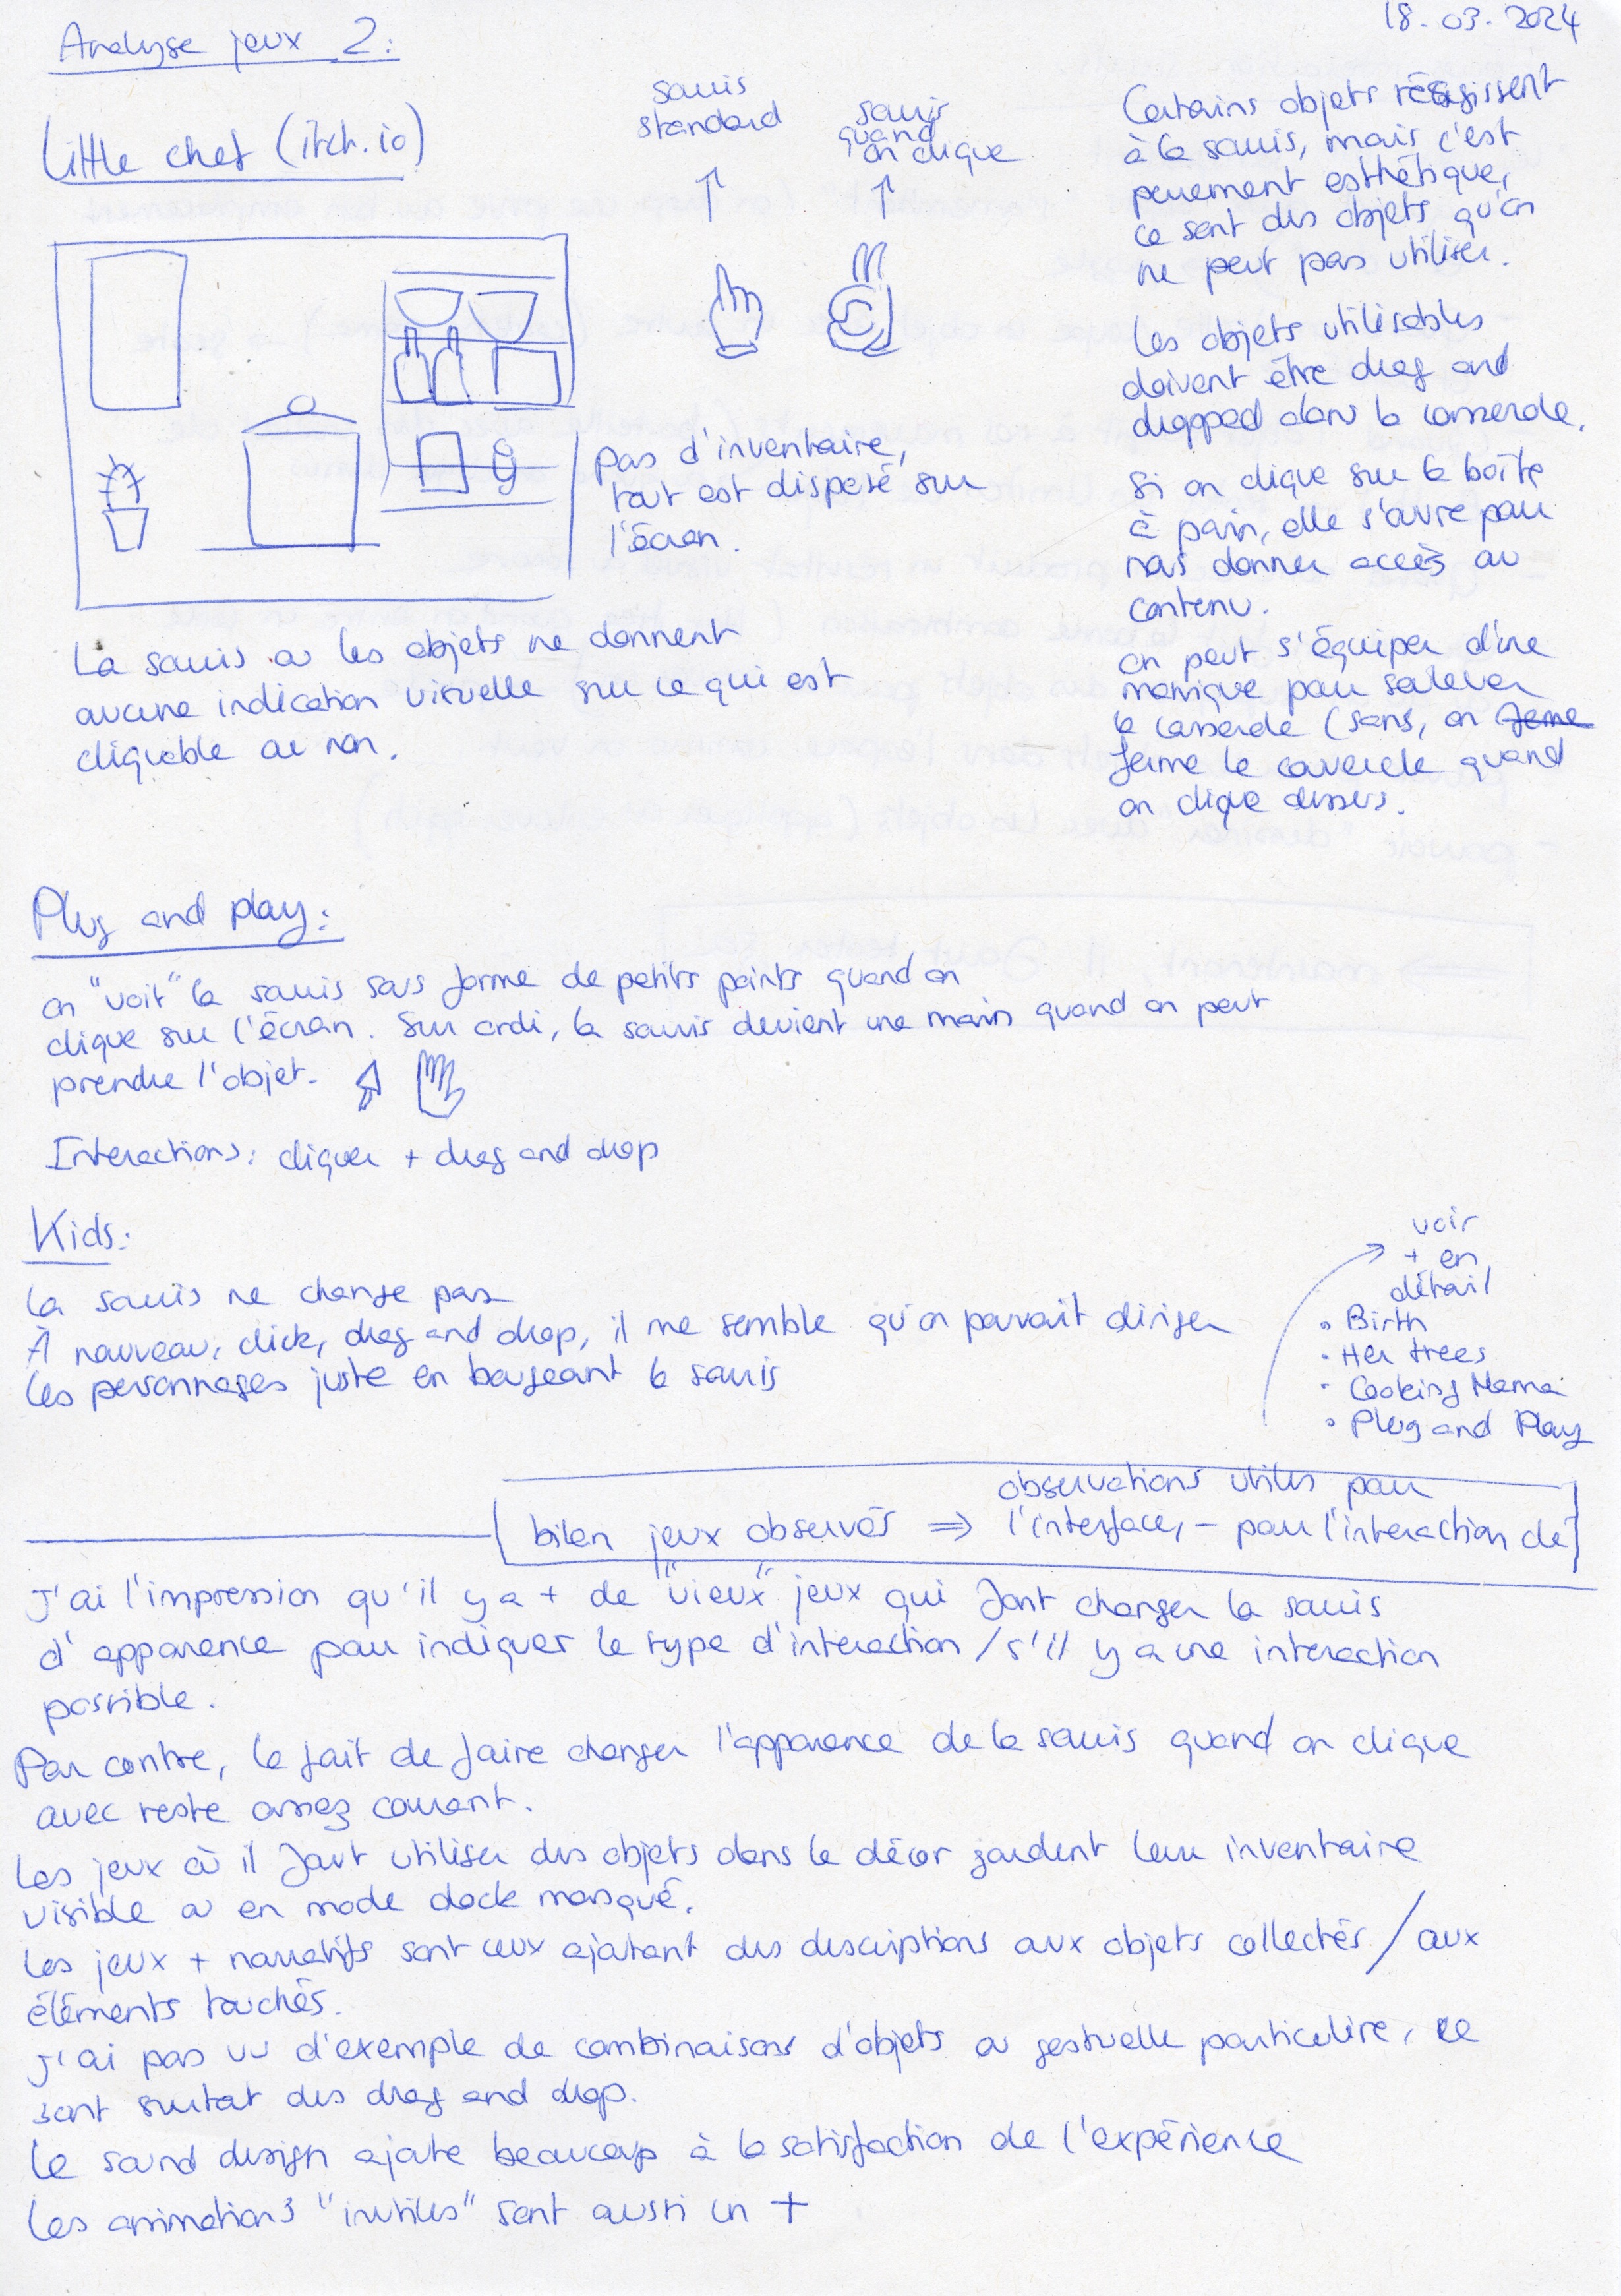 18.03.2024
Analyse jeux 2:
Little chef (itch.io)
souris
standard
souris
quand
on clique
Pas d'inventaire,
tout est disposé sur
l'écran.
La souris ou les objets ne donnent
aucune indication visuelle sur ce qui est
cliquable ou non.
Certains objets réagissent
à la souris, mais c'est
purement esthétique,
ce sont des objets qu'on
ne peut pas utiliser.
Les objets utilisables
doivent être drag and
dropped dans la casserole.
Si on clique sur la boîte
à pain, elle s'ouvre pour
nous donner accès au
contenu.
On peut s'équiper d'une
manique pour soulever
la casserole (sans, on ferme
ferme le couvercle quand
on clique dessus.
Plug and play:
On "voit" la souris sous forme de petits points quand on
clique sur l'écran. Sur ordi, la souris devient une main quand on peut
prendre l'objet.
Interactions: cliquer + drag and drop
Kids:
La souris ne change pas
À nouveau, click, drag and drop, il me semble qu'on pouvait diriger
les personnages juste en bougeant la souris
voir
+ en
détail
• Birth
• Her trees
• Cooking Mama
• Plug and Play
bilen jeux observés ⇒ observations utiles pour
l'interface, - pour l'interaction de
J'ai l'impression qu'il y a + de "vieux" jeux qui font changer la souris
d'apparence pour indiquer le type d'interaction / s'il y a une interaction
possible.
Par contre, le fait de faire changer l'apparence de la souris quand on clique
avec reste assez courant.
Les jeux où il faut utiliser des objets dans le décor gardent leur inventaire
visible ou en mode dock masqué.
Les jeux + narratifs sont ceux ajoutant des descriptions aux objets collectés / aux
éléments touchés.
J'ai pas vu d'exemple de combinaisons d'objets ou gestuelle particulière, ce
sont surtout des drag and drop.
Le sound design ajoute beaucoup à la satisfaction de l'expérience
Les animations "inutiles" sont aussi un +